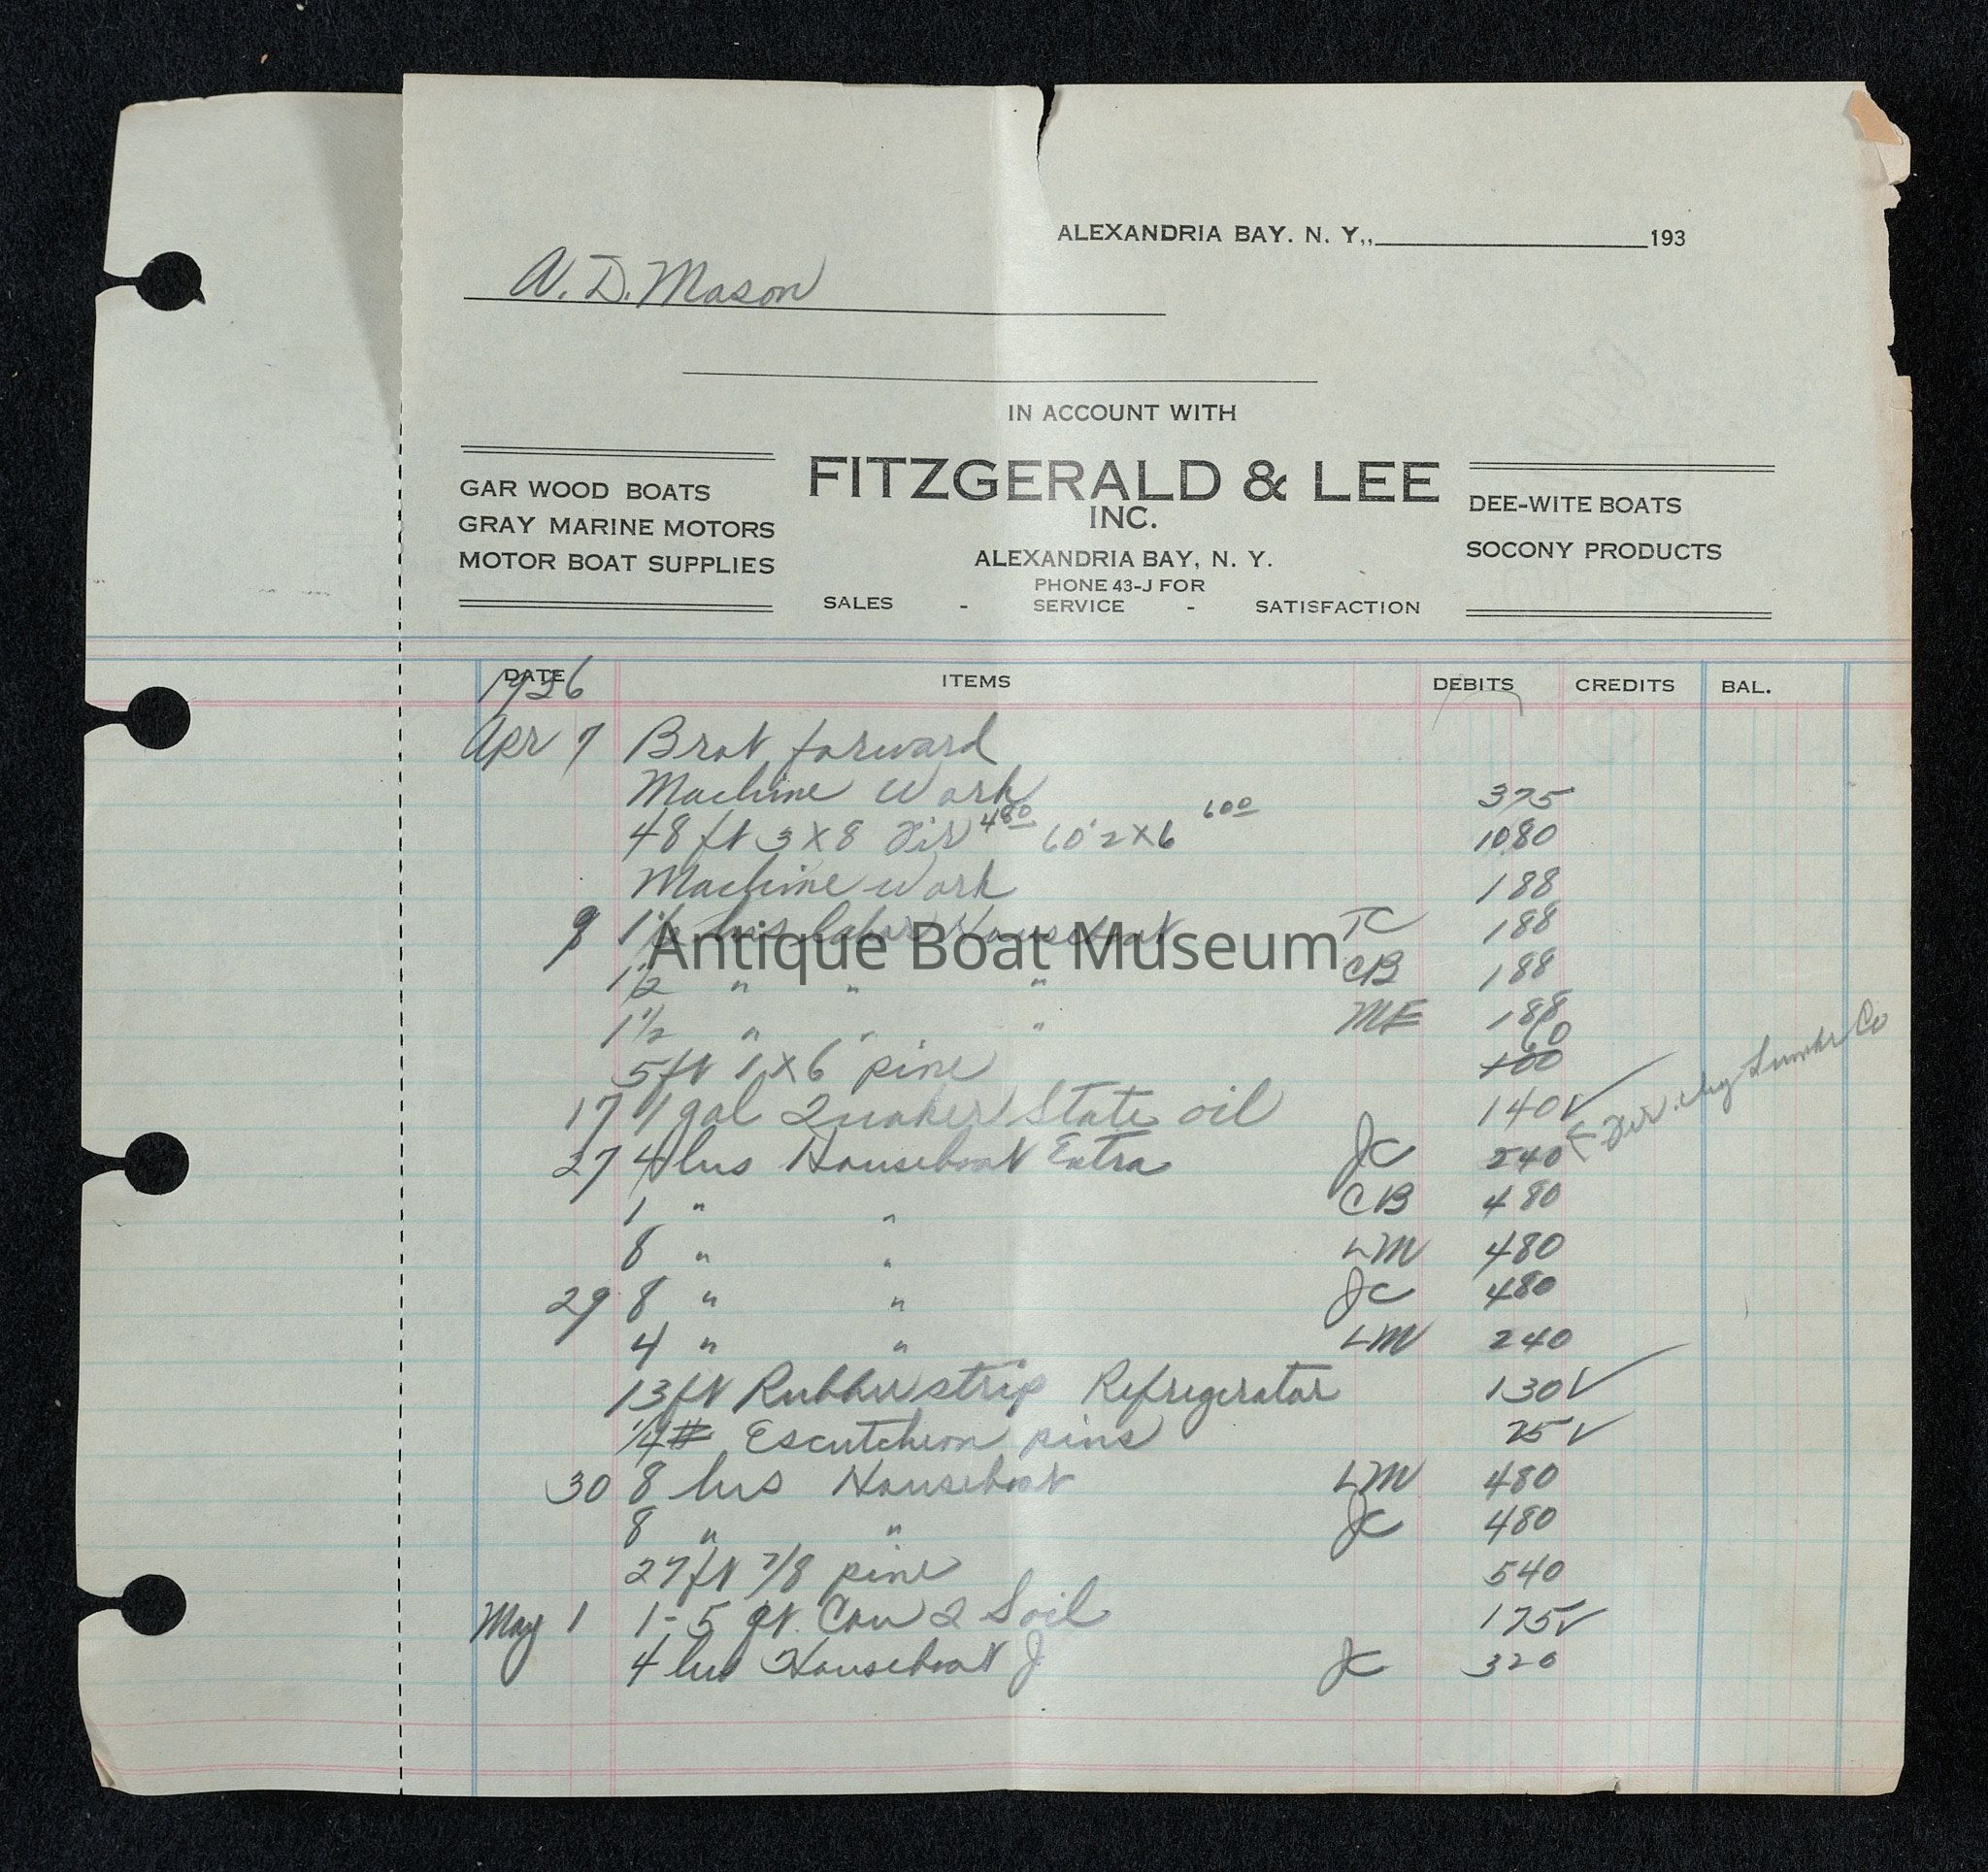 ALEXANDRIA BAY. N. Y,, 193
W. D. Mason
IN ACCOUNT WITH
GAR WOOD BOATS
GRAY MARINE MOTORS
MOTOR BOAT SUPPLIES
FITZGERALD & LEE
INC.
ALEXANDRIA BAY, N. Y.
PHONE 43-J FOR
SALES - SERVICE - SATISFACTION
DEE-WITE BOATS
SOCONY PRODUCTS
DATE ITEMS DEBITS CREDITS BAL.
1936
Apr 7 Brot forward
Machine Work 375
48 ft 3 X 8 Fir 480 60' 2 X 6 600 1080
Machine Work 188
9 1½ hrs labor Houseboat TC 188
Antique Boat Museum
1½ " " " CB 188
1½ " " " MF 188
5 ft 1 X 6 pine 60
17 1 gal Quaker State oil 140 ✓
27 4 hrs Houseboat Extra JC 240
1 " " CB 480
8 " " LM 480
29 8 " " JC 480
4 " " LM 240
13 ft Rubber strip Refrigerator 130 ✓
1/4 # Escutcheon pins 25 ✓
30 8 hrs Houseboat LM 480
8 " " JC 480
27 ft 7/8 pine 540
May 1 1 - 5 qt. Can 2 S oil 175 ✓
4 hrs Houseboat J JC 320